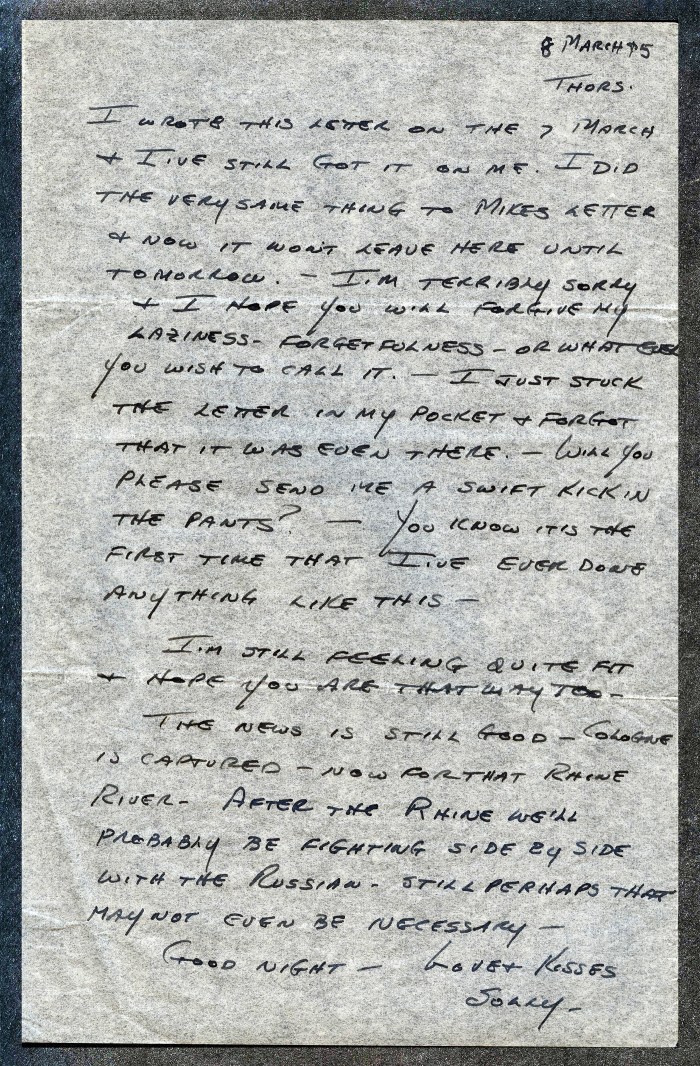 8 MARCH 45
THURS.
I WROTE THIS LETTER ON THE 7 MARCH
& I'VE STILL GOT IT ON ME. I DID
THE VERY SAME THING TO MIKES LETTER
& NOW IT WON'T LEAVE HERE UNTIL
TOMORROW. – I'M TERRIBLY SORRY
& I HOPE YOU WILL FORGIVE MY
LAZINESS – FORGETFULNESS – OR WHAT EVER
YOU WISH TO CALL IT. – I JUST STUCK
THE LETTER IN MY POCKET & FORGOT
THAT IT WAS EVEN THERE. – WILL YOU
PLEASE SEND ME A SWIFT KICK IN
THE PANTS? – YOU KNOW IT IS THE
FIRST TIME THAT I'VE EVER DONE
ANYTHING LIKE THIS –
I'M STILL FEELING QUITE FIT
& HOPE YOU ARE THAT WAY TOO –
THE NEWS IS STILL GOOD – COLOGNE
IS CAPTURED – NOW FOR THAT RHINE
RIVER – AFTER THE RHINE WE'LL
PROBABLY BE FIGHTING SIDE BY SIDE
WITH THE RUSSIAN – STILL PERHAPS THAT
MAY NOT EVEN BE NECESSARY –
GOOD NIGHT – LOVE & KISSES